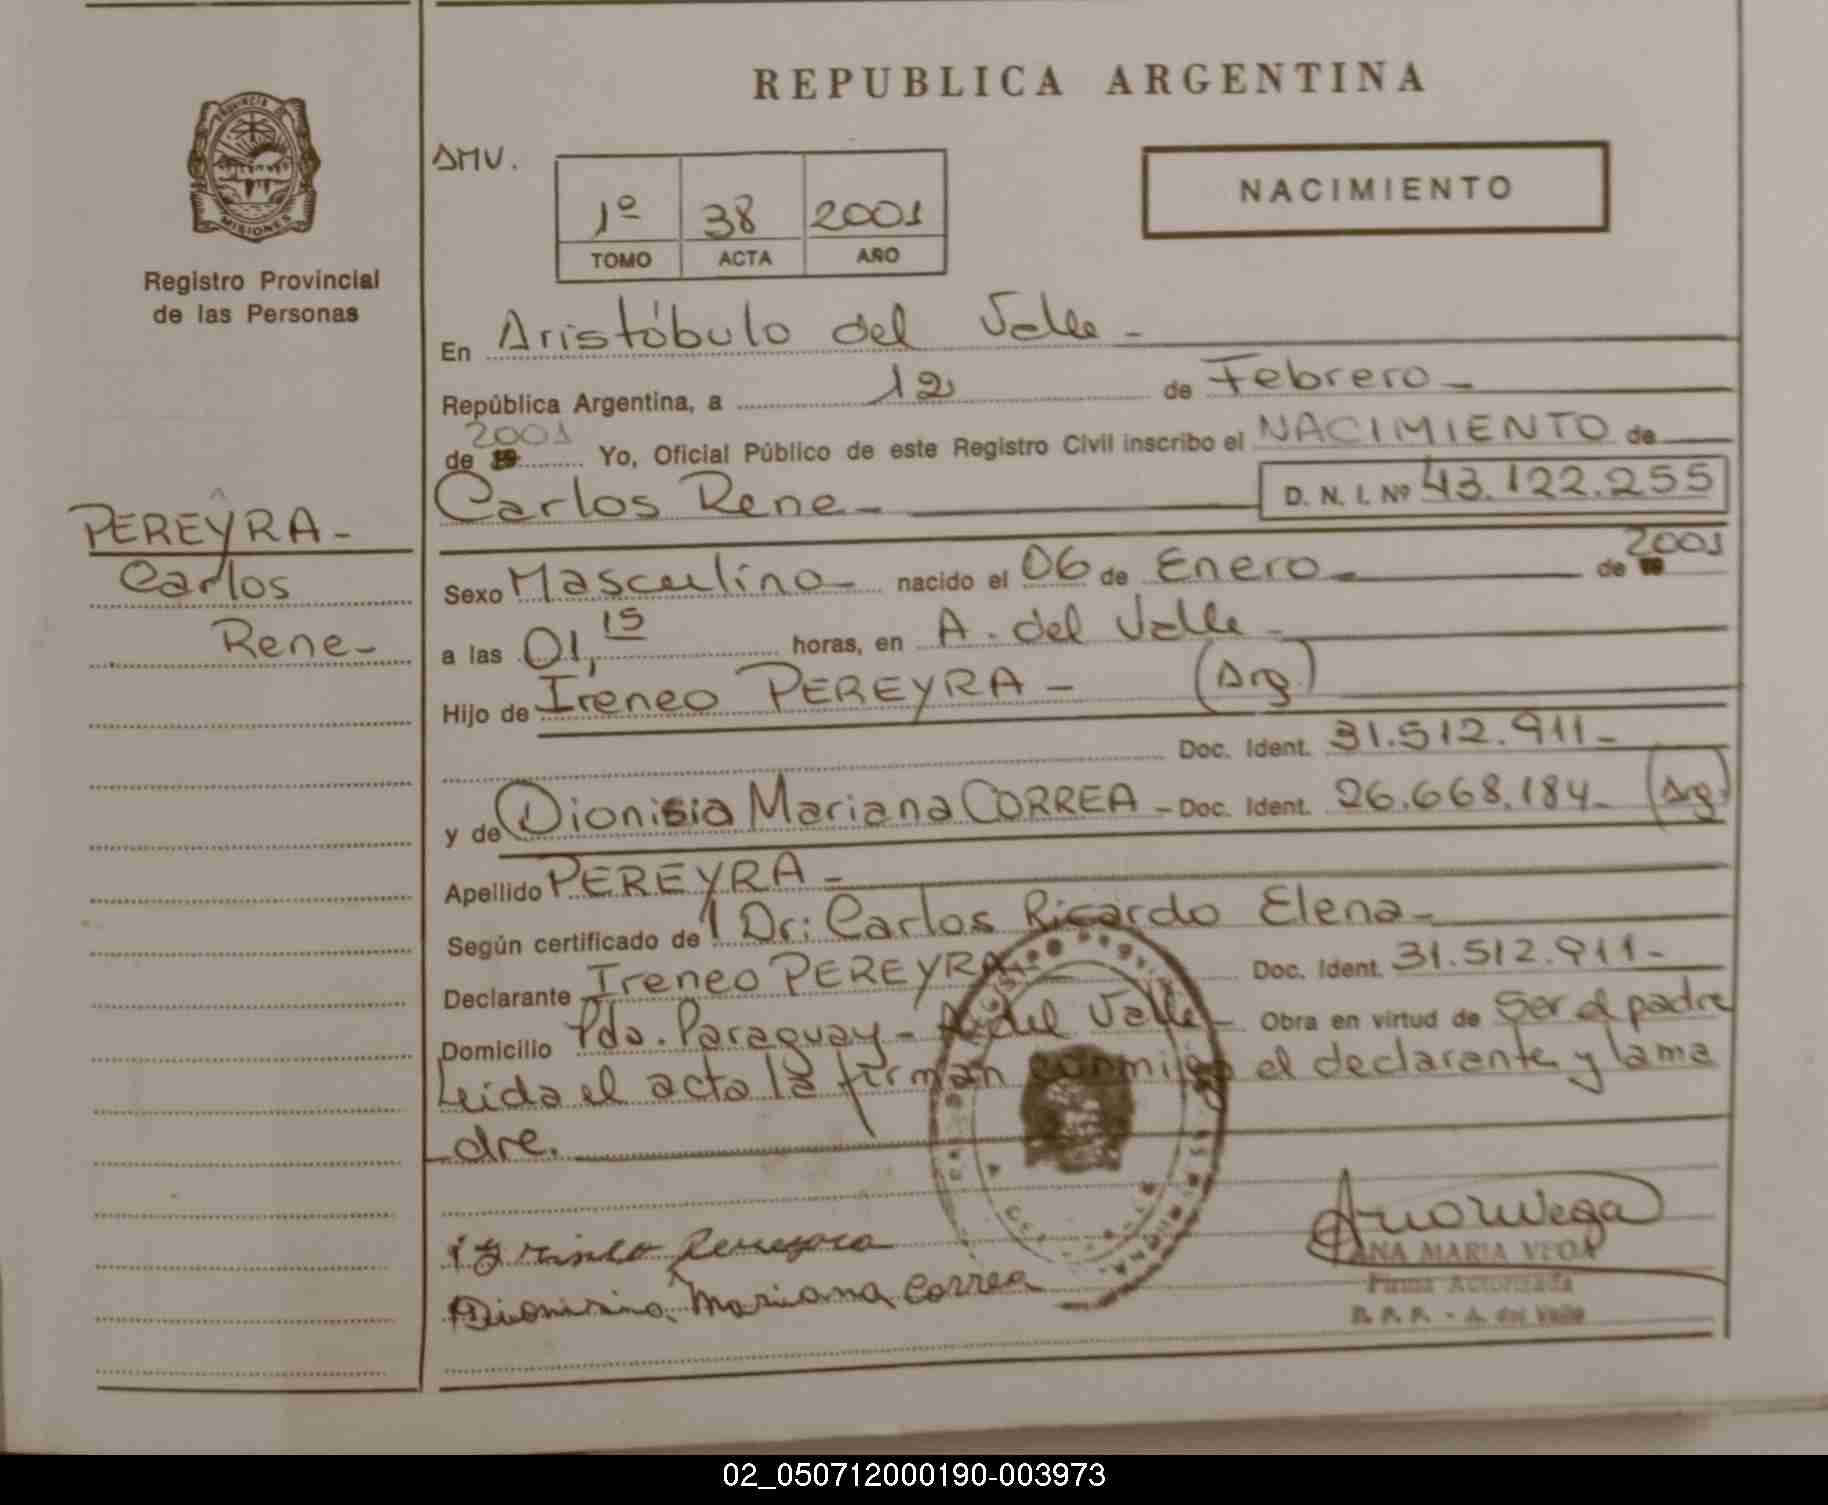 REPUBLICA ARGENTINA
PROVINCIA DE
MISIONES
Registro Provincial
de las Personas
DMV.
1º 38 2001
TOMO ACTA AÑO
NACIMIENTO
En Aristóbulo del Valle -
República Argentina, a 12 de Febrero -
2001
de 19 Yo, Oficial Público de este Registro Civil inscribo el NACIMIENTO de
Carlos Rene - D. N. I. Nº 43.122.255
PEREYRA -
Carlos
Rene -
Sexo Masculino - nacido el 06 de Enero - de 19 2001
a las 01,15 horas, en A. del Valle -
Hijo de Ireneo PEREYRA - (Arg.)
Doc. Ident. 31.512.911 -
y de Dionisia Mariana CORREA - Doc. Ident. 26.668.184 - (Arg)
Apellido PEREYRA -
Según certificado de Dr: Carlos Ricardo Elena -
Declarante Ireneo PEREYRA Doc. Ident. 31.512.911 -
Domicilio Pdo. Paraguay - A. del Valle - Obra en virtud de ser el padre
Leida el acta la firman conmigo el declarante y la ma
dre.
Mariana Correa
ANA MARIA VEGA
Firma Autorizada
R. P. P. - A. del Valle
02_050712000190-003973